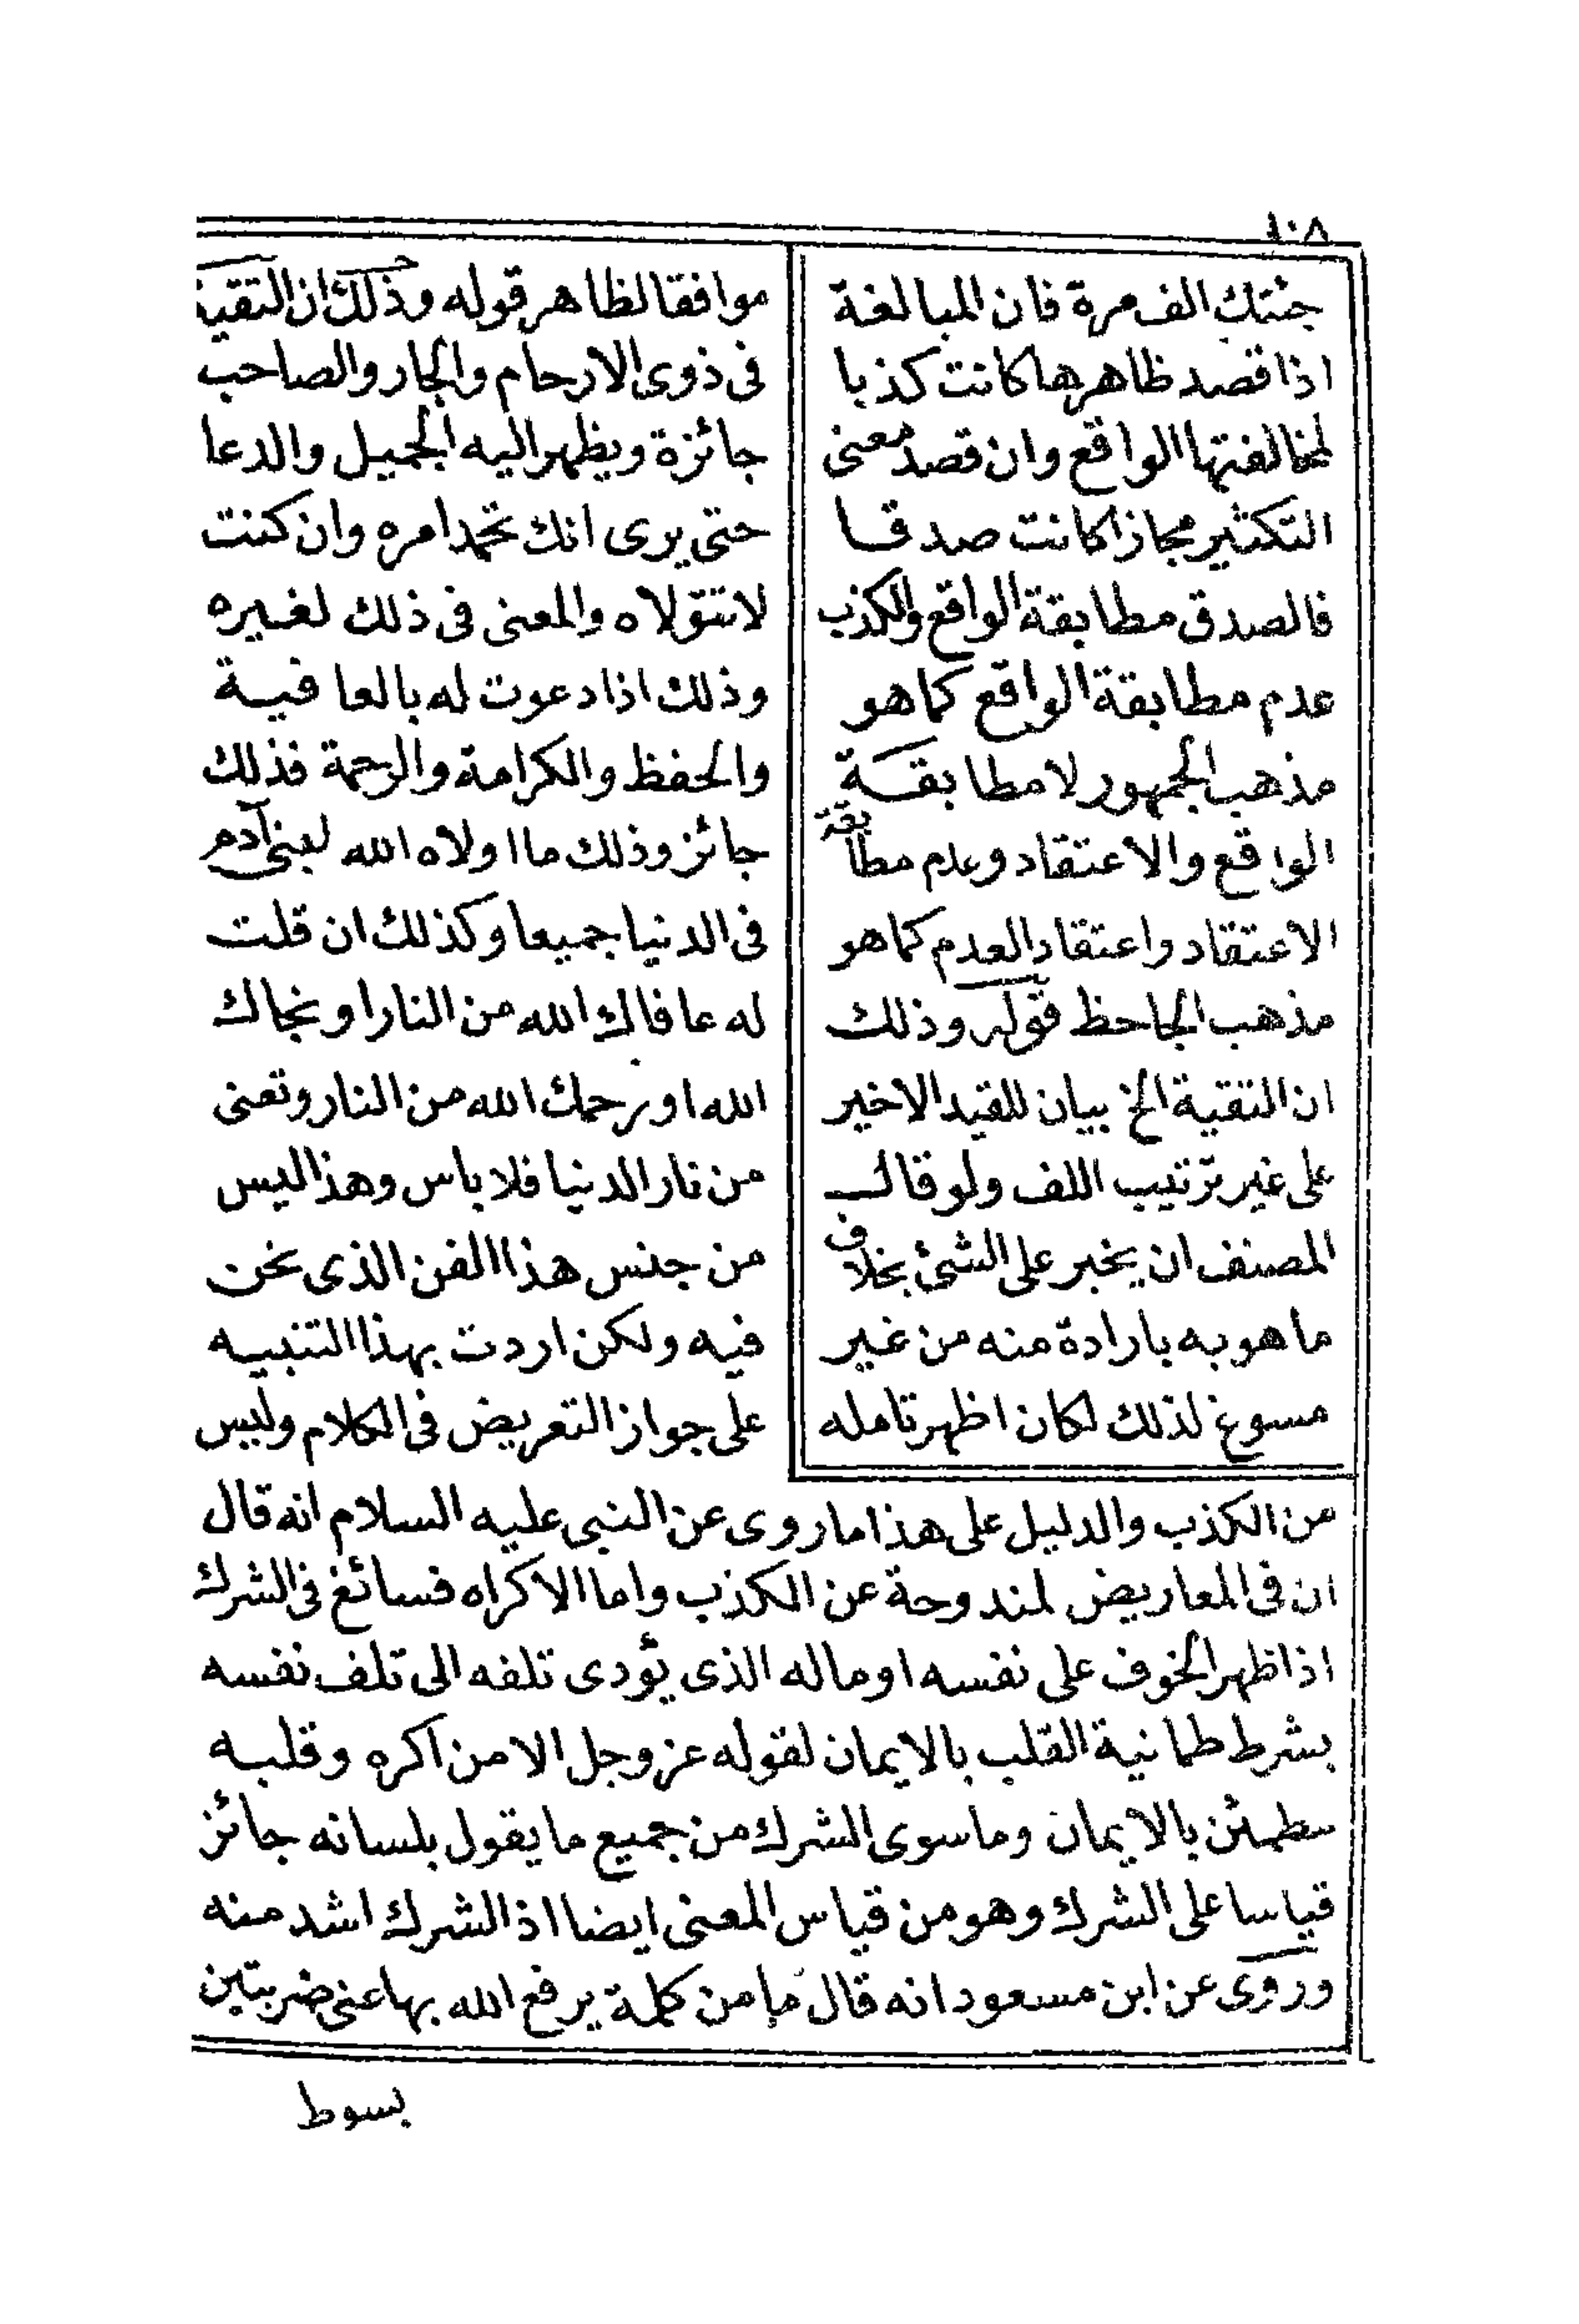 ١٠٨
جئتك الف مرة فان المبالغة
اذا قصد ظاهرها كانت كذبا
لمخالفتها الواقع وان قصد معنى
التكثير مجازا كانت صدقا
فالصدق مطابقة الواقع والكذب
عدم مطابقة الواقع كما هو
مذهب الجمهور لا مطابقة
الواقع والاعتقاد وعدم مطابقة
الاعتقاد واعتقاد العدم كما هو
مذهب الجاحظ قوله وذلك
ان التقية الخ بيان للقيد الاخير
على غير ترتيب اللف ولو قال
المصنف ان يخبر على الشئ بخلاف
ما هو به بارادة منه من غير
مسوغ لذلك لكان اظهر تامله
موافقا لظاهر قوله وذلك ان التقية
فى ذوى الارحام والجار والصاحب
جائزة ويظهر اليه الجميل والدعا
حتى يرى انك تحمد امره وان كنت
لا تتولاه والمعنى فى ذلك لغيره
وذلك اذا دعوت له بالعافية
والحفظ والكرامة والرحمة فذلك
جائز وذلك ما اولاه الله لبنى آدم
فى الدنيا جميعا وكذلك ان قلت
له عافاك الله من النار او نجاك
الله او رحمك الله من النار وتعنى
من نار الدنيا فلا باس وهذا ليس
من جنس هذا الفن الذى نحن
فيه ولكن اردت بهذا التنبيه
على جواز التعريض فى الكلام وليس
من الكذب والدليل على هذا ما روى عن النبى عليه السلام انه قال
ان فى المعاريض لمندوحة عن الكذب واما الاكراه فسائغ فى الشرك
اذا ظهر الخوف على نفسه او ماله الذى يؤدى تلفه الى تلف نفسه
بشرط طمانية القلب بالايمان لقوله عز وجل الا من اكره وقلبه
مطمئن بالايمان وما سوى الشرك من جميع ما يقول بلسانه جائز
قياسا على الشرك وهو من قياس المعنى ايضا اذ الشرك اشد منه
وروى عن ابن مسعود انه قال ما من كلمة يرفع الله بها عنى ضربتين
بسوط